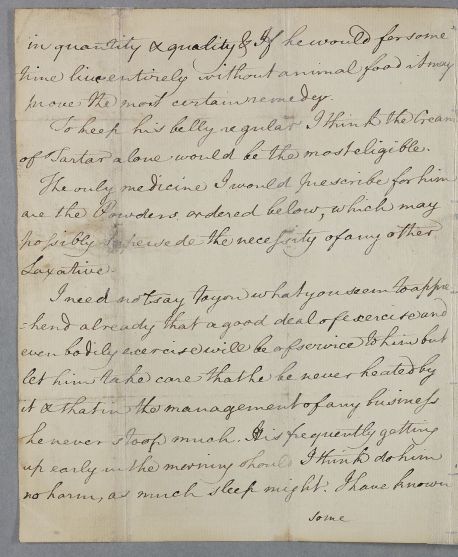 in quantity & quality & If he would for some
time live entirely without animal food it may
prove the most certain remedy.
To keep his belly regular I think the Cream
of Tartar alone would be the most eligible.
The only medicine I would prescribe for him
are the Powders, ordered below, which may
possibly supersede the necessity of any other
Laxative.
I need not say to you what you seem to appre
=hend already that a good deal of exercise and
even bodily exercise will be of service to him but
let him take care that he be never heated by
it & that in the management of any business
he never stoop much. His frequently getting
up early in the morning should I think do him
no harm, as much sleep might. I have known
some